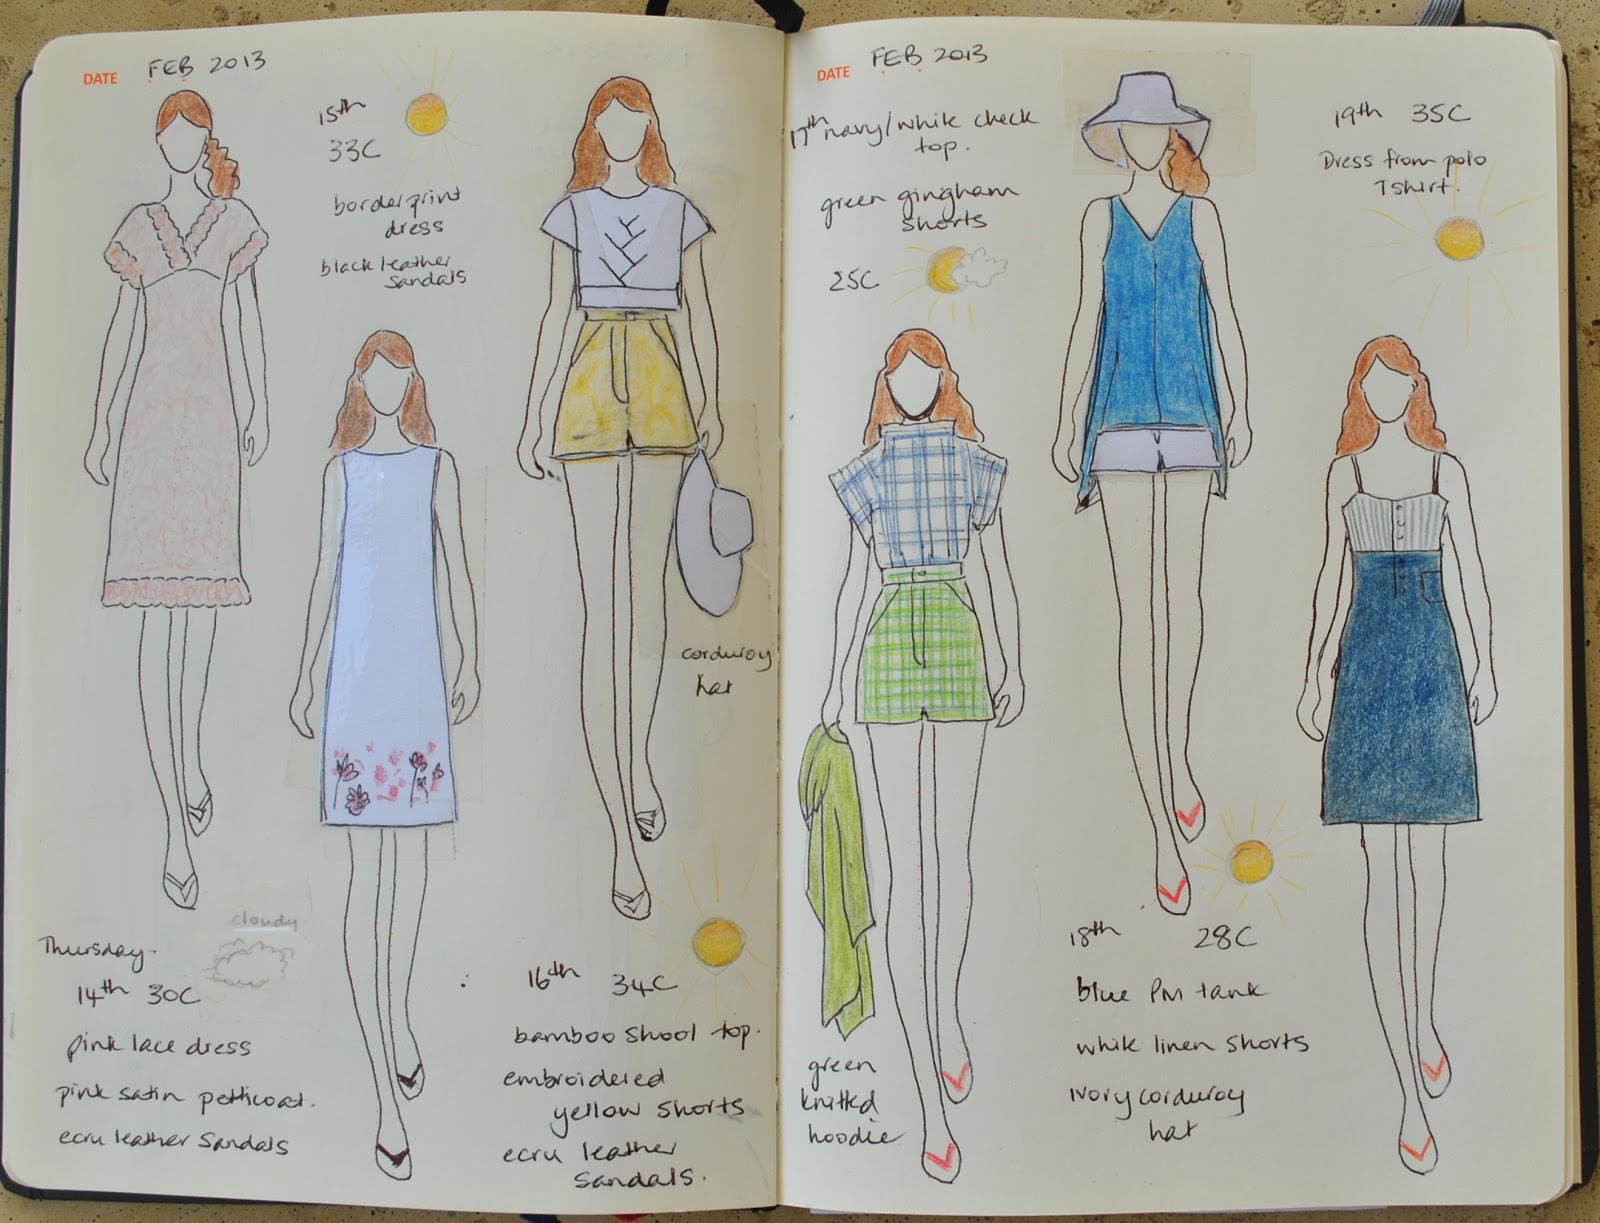 DATE FEB 2013
15th
33C
borderprint
dress
black leather
sandals
corduroy
hat
cloudy
Thursday.
14th 30C
pink lace dress
pink satin petticoat.
ecru leather sandals
16th 34C
bamboo shool top.
embroidered
yellow shorts
ecru leather
sandals.
DATE FEB 2013
17th navy/white check
top.
green gingham
shorts
25C
green
knitted
hoodie
18th 28C
blue PM tank
white linen shorts
ivory corduroy
hat
19th 35C
Dress from polo
Tshirt.